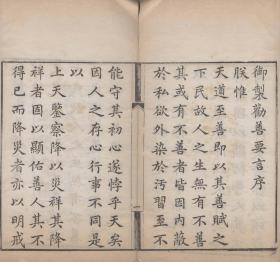 御製勸善要言序
朕惟
天道至善即以其善賦之
下民故人之生無有不善
其或有不善者皆因內蔽
於私欲外染於污習至不
能守其初心遂悖乎天矣
因人之存心行事不同是
以
上天鑒察降以災祥其降
祥者固以顯佑善人其不
得已而降災者亦以明戒